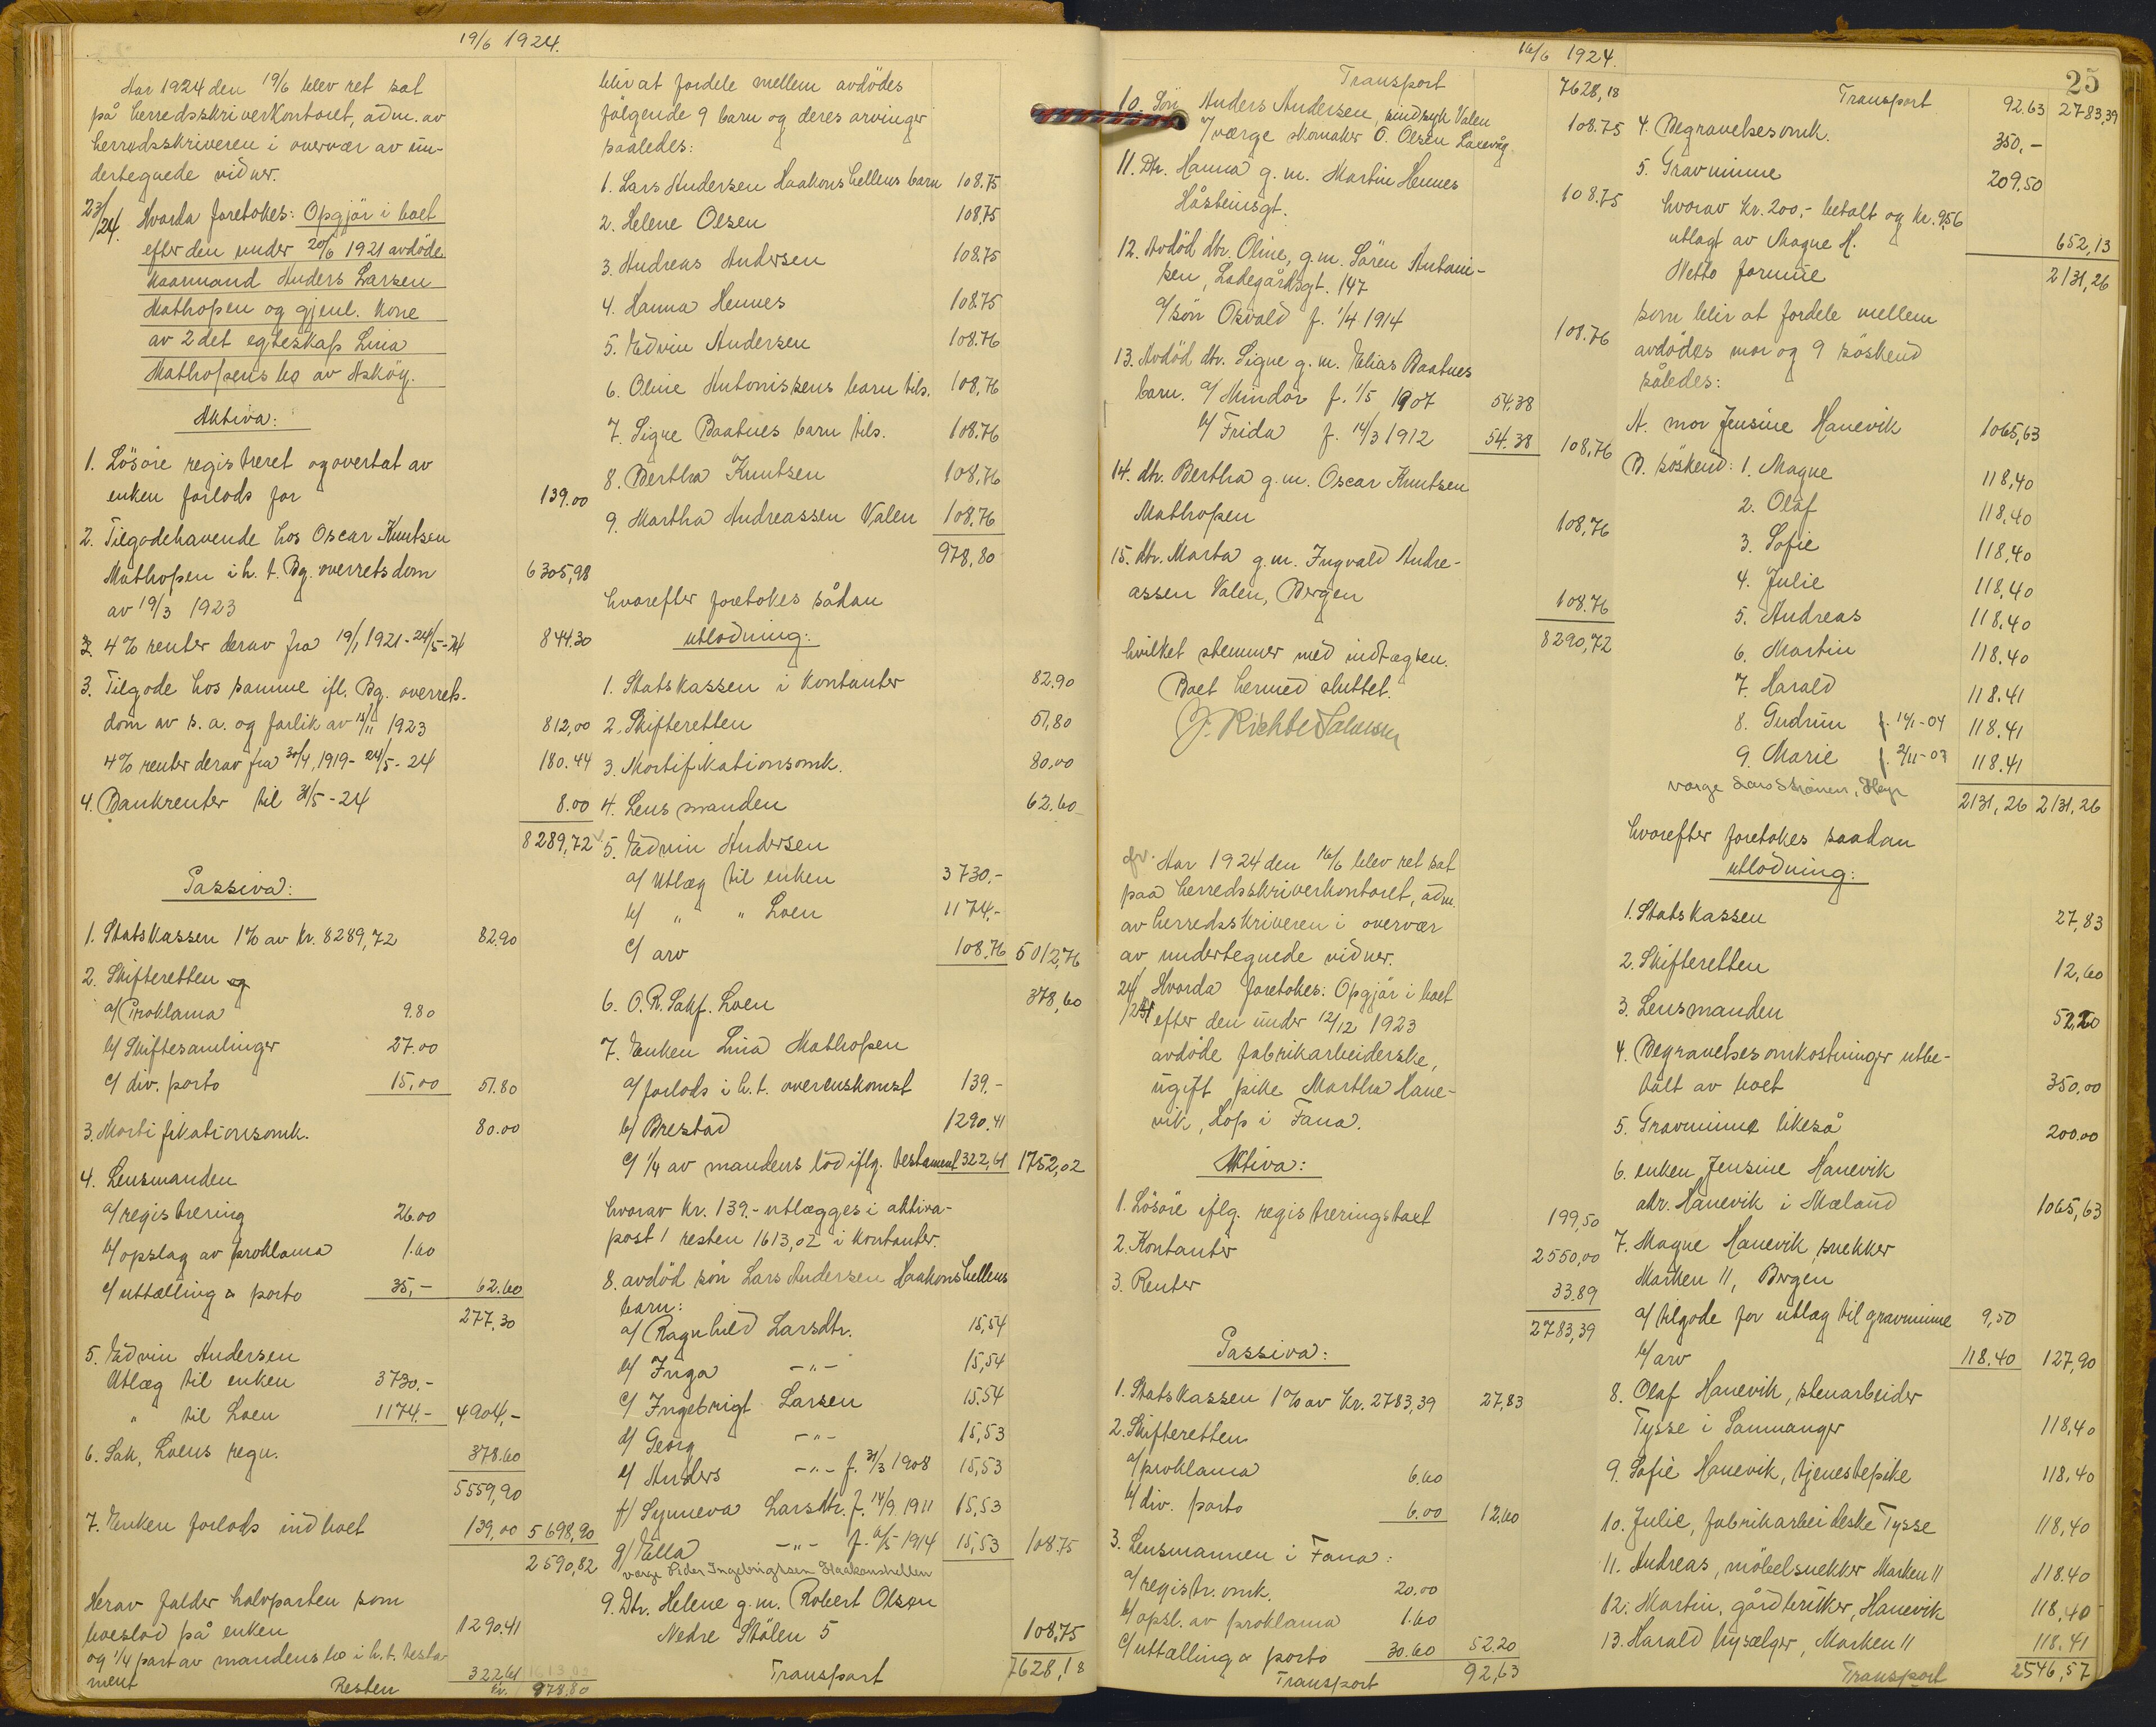 19/6 1924.
Aar 1924 den 19/6 blev ret sat
på herredsskriverkontoret, adm. av
herredsskriveren i overvær av un-
dertegnede vidner.
23/24. Hvorda foretokes: Opgjör i boet
efter den under 20/6 1921 avdöde
kaarmand Anders Larsen
Mathopen og gjenl. kone
av 2det egteskap Lina
Mathopens bo av Asköy.
Aktiva:
1. Lösöre registreret og overtat av
enken forlods for 139.00
2. Tilgodehavende hos Oscar Knutsen
Mathopen i h. t. Bg. overretsdom
av 19/3 1923 6305,98
3. 4% renter derav fra 19/1 1921 - 24/5-24 844.30
3. Tilgode hos samme ifl. Bg. overrets-
dom av s. a. og forlik av 15/11 1923 812,00
4% renter derav fra 30/4, 1919 - 24/5 - 24 180.44
4. Bankrenter til 31/5 - 24 8.00
8289,72
Passiva:
1. Statskassen 1% av kr. 8289,72 82.90
2. Skifteretten og
a/ Proklama 9.80
b/ Skiftesamlinger 27.00
c/ div. porto 15,00 51.80
3. Mortifikationsomk. 80.00
4. Lensmanden
a/ registrering 26.00
b/ opslag av proklama 1.60
c/ uttælling & porto 35,- 62.60
277,30
5. Edvin Andersen
Utlæg til enken 3730.-
" til Loen 1174.- 4904,-
6. Sak. Loens regn. 378.60
5559,90
7. Enken forlods ind boet 139,00 5698,90
2590,82
Herav falder halvparten som
boeslod på enken 1290.41
og 1/4 part av mandens bo i h. t. testa-
ment 322,61 1613,02
Resten kr. 978,80
blir at fordele mellem avdödes
fölgende 9 barn og deres arvinger
saaledes:
1. Lars Andersen Haakonshellens barn 108.75
2. Helene Olsen 108,75
3. Andreas Andersen 108.75
4. Hanna Hennes 108.75
5. Edvin Andersen 108.76
6. Oline Antonissens barn tils. 108,76
7. Signe Baatnes barn tils. 108.76
8. Bertha Knutsen 108,76
9. Martha Andreassen Valen 108.76
978,80
hvorefter foretokes sådan
utlodning:
1. Statskassen i kontanter 82.90
2. Skifteretten 51,80
3. Mortifikationsomk. 80,00
4. Lensmanden 62.60
5. Edvin Andersen
a/ Utlæg til enken 3730.-
b/ " " Loen 1174,-
c/ arv 108.76 5012,76
6. O.R. Sakf. Loen 378,60
7. Enken Lina Mathopen
a/ forlods i h. t. overenskomst 139.-
b/ Boeslod 1290.41
c/ 1/4 av mandens lod iflg. testament 322,61 1752,02
hvorav kr. 139.- utlægges i aktiva-
post 1 resten 1613,02 i kontanter.
8. avdöd sön Lars Andersen Haakonshellens
barn:
a/ Ragnhild Larsdtr. 15,54
b/ Inga -"- 15,54
c/ Ingebrigt Larsen 15.54
d/ Georg -"- 15,53
e/ Anders -"- f. 31/3 1908 15,53
f/ Synneva Larsdtr. f. 14/9 1911 15,53
g/ Ella -"- f. 6/5 1914 15,53 108.75
værge Peder Ingebrigtsen Haakonshellen
9. Dtr. Helene g.m. Robert Olsen
Nedre Stölen 5 108,75
Transport 7628,18
16/6 1924.
25
Transport 7628,18
10. Sön Anders Andersen, sindssyk Valen
7/værge skomaker O. Olsen Laxevåg 108.75
11. Dtr. Hanna g. m. Martin Hennes
Håsteinsgt. 108.75
12. Avdöd dtr. Oline, g.m. Sören Antoni-
sen, Ladegårdsgt. 147
a/ sön Osvald f. 1/4 1914 108.76
13. Avdöd dtr. Signe g.m. Elias Baatnes
barn. a/ Mindor f. 1/5 1907 54.38
b/ Frida f. 14/3 1912 54.38 108,76
14. dtr. Bertha g.m. Oscar Knutsen
Mathopen 108,76
15. dtr. Marta g.m. Ingvald Andre-
assen Valen, Bergen 108.76
8290,72
hvilket stemmer med indtægten.
Boet hermed sluttet.
Aar 1924 den 16/6 blev ret sat
paa herredsskriverkontoret, adm.
av herredsskriveren i overvær
av undertegnede vidner.
24/ Hvorda foretokes: Opgjör i boet
efter den under 12/12 1923
avdöde fabrikarbeiderske,
ugift pike Martha Hane-
vik, Hop i Fana.
Aktiva:
1. Lösöre iflg. registreringstaxt 199,50
2. Kontanter 2550,00
3. Renter 33.89
2783,39
Passiva:
1. Statskassen 1% av kr. 2783,39 27,83
2. Skifteretten
a/ proklama 6.60
b/ div. porto 6.00 12.60
3. Lensmannen i Fana:
a/ registr. omk. 20.00
b/ opsl. av proklama 1.60
c/ uttælling & porto 30.60 52.20
Transport 92,63
Transport 92.63 2783,39
4. Begravelsesomk. 350,-
5. Gravminne 209,50
hvorav kr. 200,- betalt og kr. 9,56
utlagt av Magne H. 652,13
Netto formue 2131,26
som blir at fordele mellem
avdödes mor og 9 söskend
således:
A. mor Jensine Hanevik 1065,63
B. söskend: 1. Magne 118,40
2. Olaf 118,40
3. Sofie 118,40
4. Julie 118,40
5. Andreas 118,40
6. Martin 118.40
7. Harald 118.41
8. Gudrun f. 14/1-04 118.41
9. Marie f. 2/11-07 118.41
2131,26 2131,26
hvorefter foretokes saadan
utlodning:
1. Statskassen 27,83
2. Skifteretten 12,60
3. Lensmanden 52,20
4. Begravelsesomkostninger utbe-
talt av boet 350,00
5. Gravminne likeså 200.00
6. enken Jensine Hanevik
adr. Hanevik i Mæland 1065,63
7. Magne Hanevik, snekker
Marken 11, Bergen
a/ tilgode for utlæg til gravminne 9,50
b/ arv 118.40 127,90
8. Olaf Hanevik, stenarbeider
Tysse i Samnanger 118,40
9. Sofie Hanevik, tjenestepike 118,40
10. Julie, fabrikarbeideske Tysse 118,40
11. Andreas, möbelsnekker Marken 11 118.40
12. Martin, gårdbruker, Hanevik 118,40
13. Harald, Marken 11 118.41
Transport 2546,57